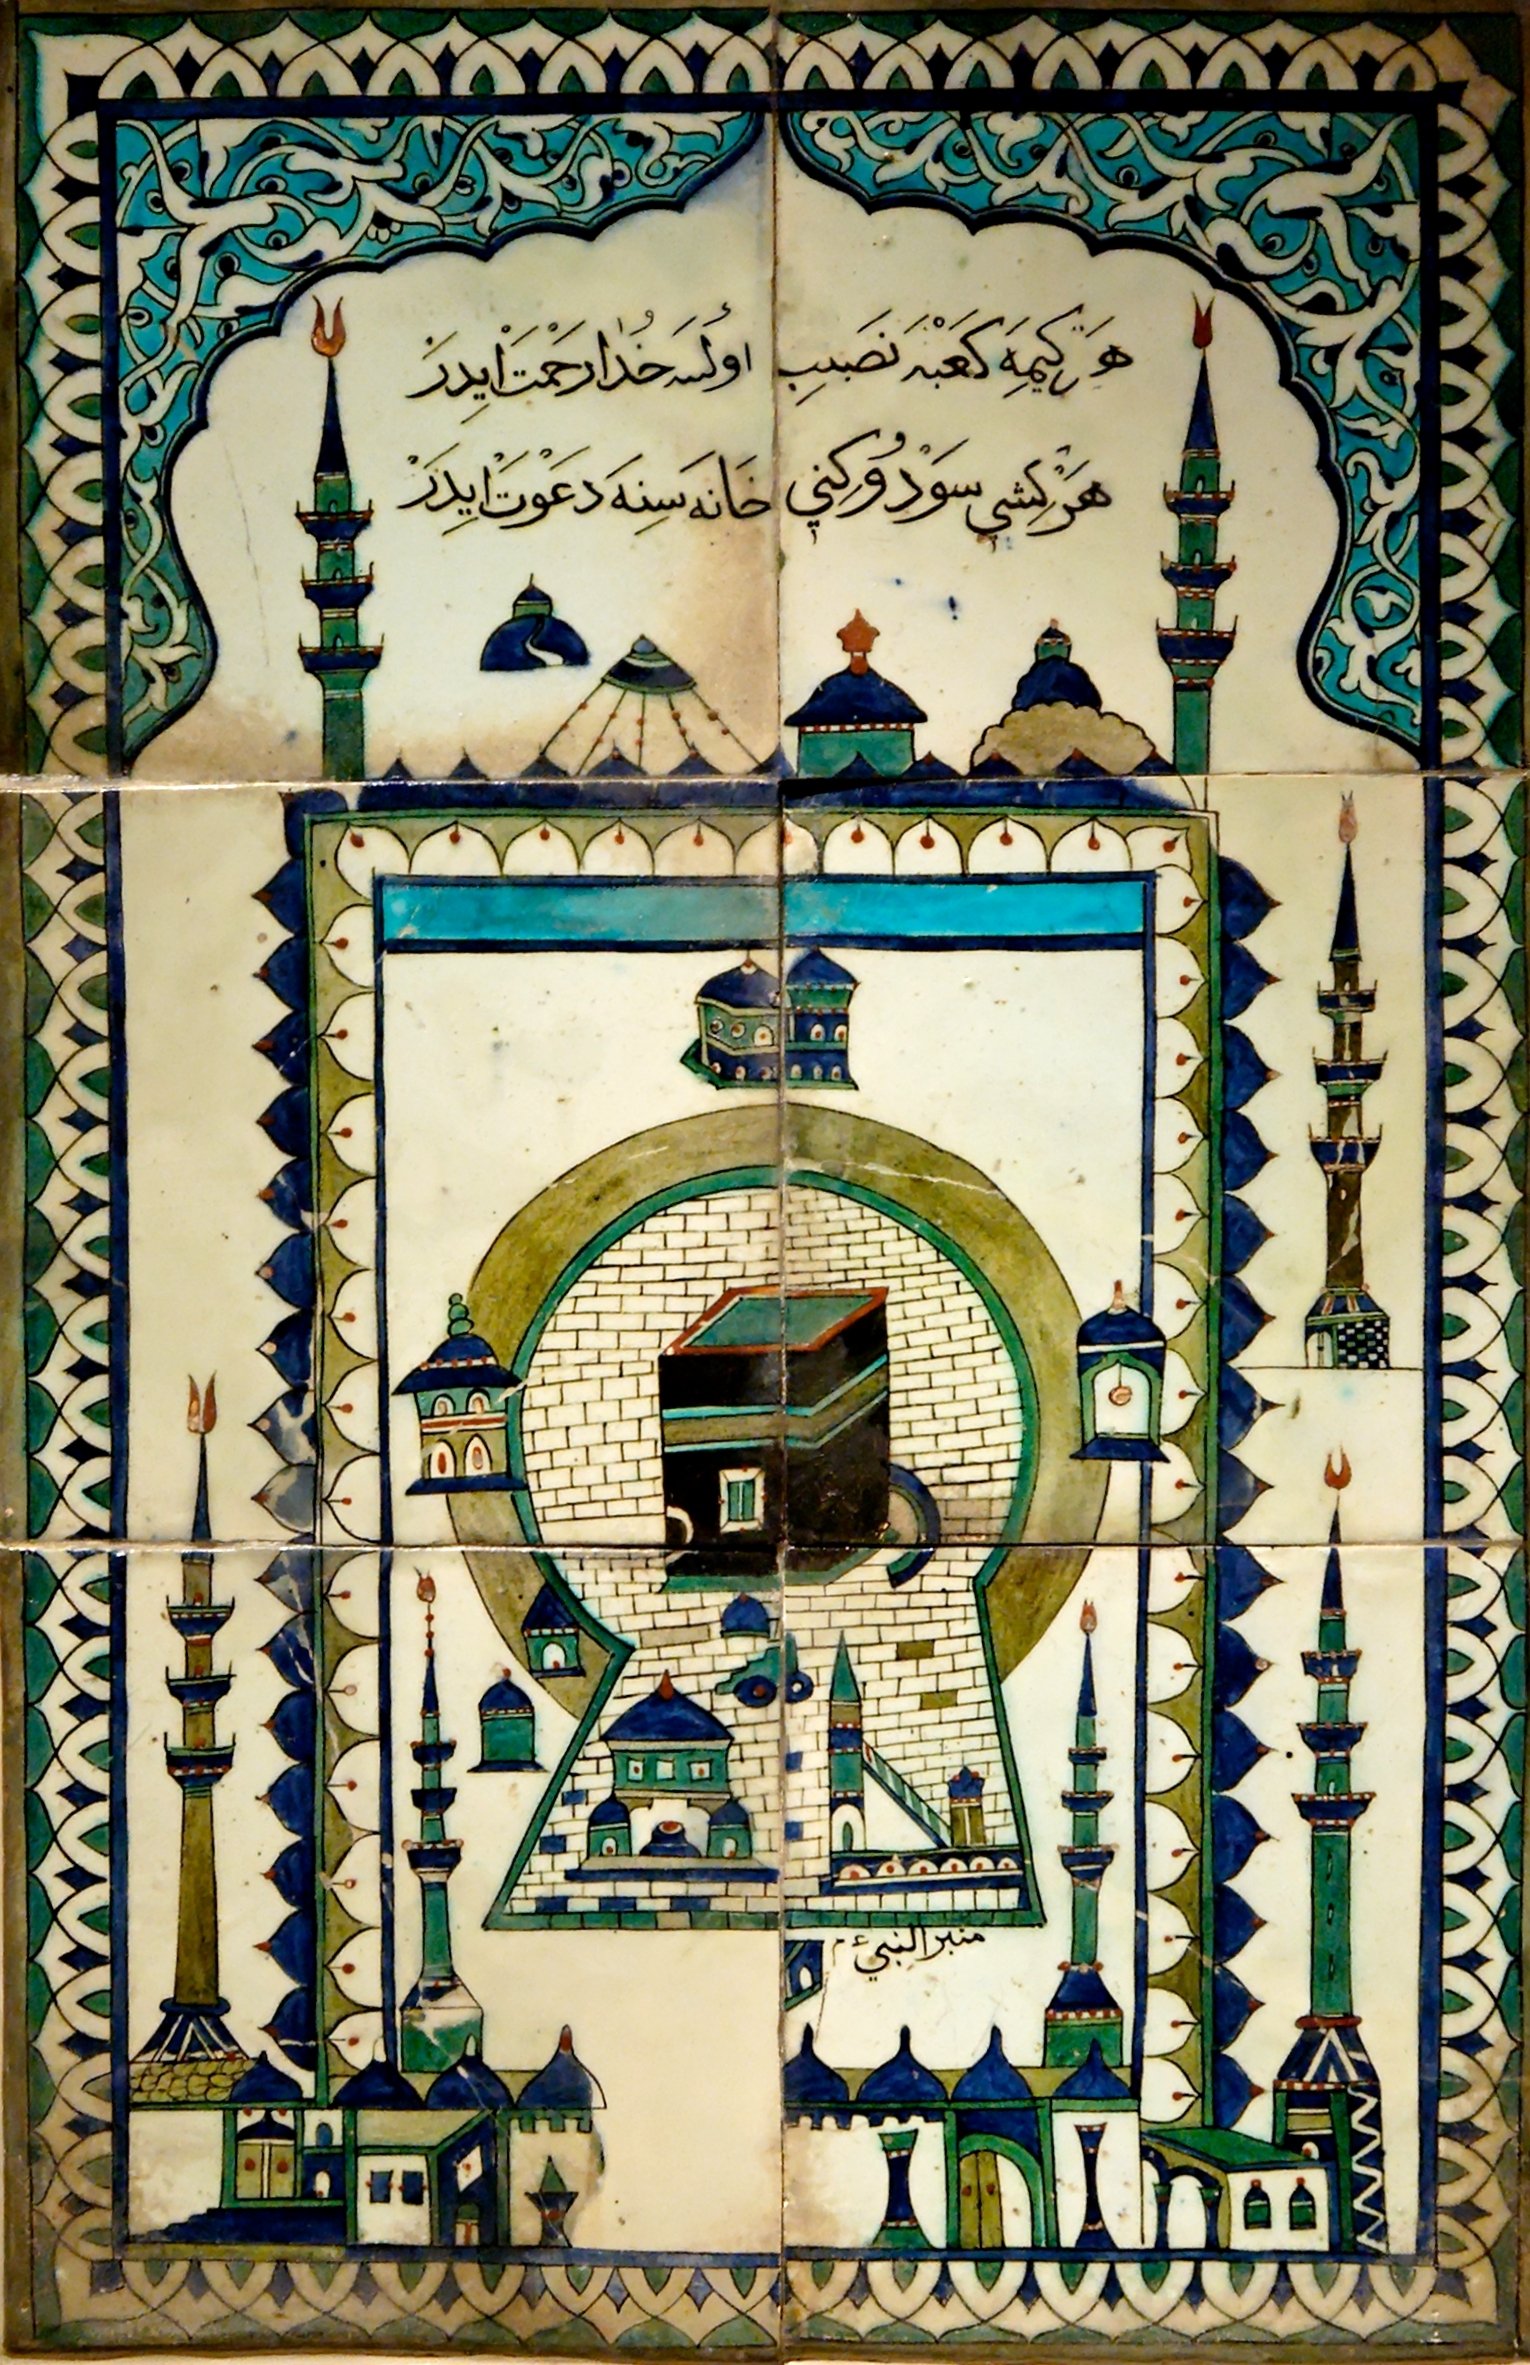 هَرَ كِيمِهَ كَعْبَهْ نَصَبِيب اوُلَسَه خُدَا رَحْمَتْ ايدِرَ
هَرْ كِشِي سَوْدُوُكِنيِ خَانَه سِنِهَ دَعْوَتْ ايِدِرَ
منبر النبي ءم